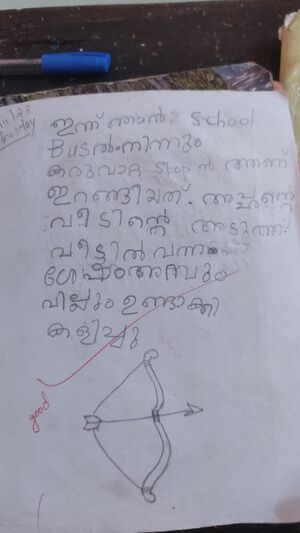 11/23
Tuesday
ഇന്ന് ഞാൻ School
Busൽ നിന്നും
കരുവാറ്റ stop ൽ ആണ്
ഇറങ്ങിയത്. അച്ഛൻ്റെ
വീടിൻ്റെ അടുത്ത്
വീട്ടിൽ വന്ന
ശേഷം അമ്പും
വില്ലും ഉണ്ടാക്കി
കളിച്ചു
good